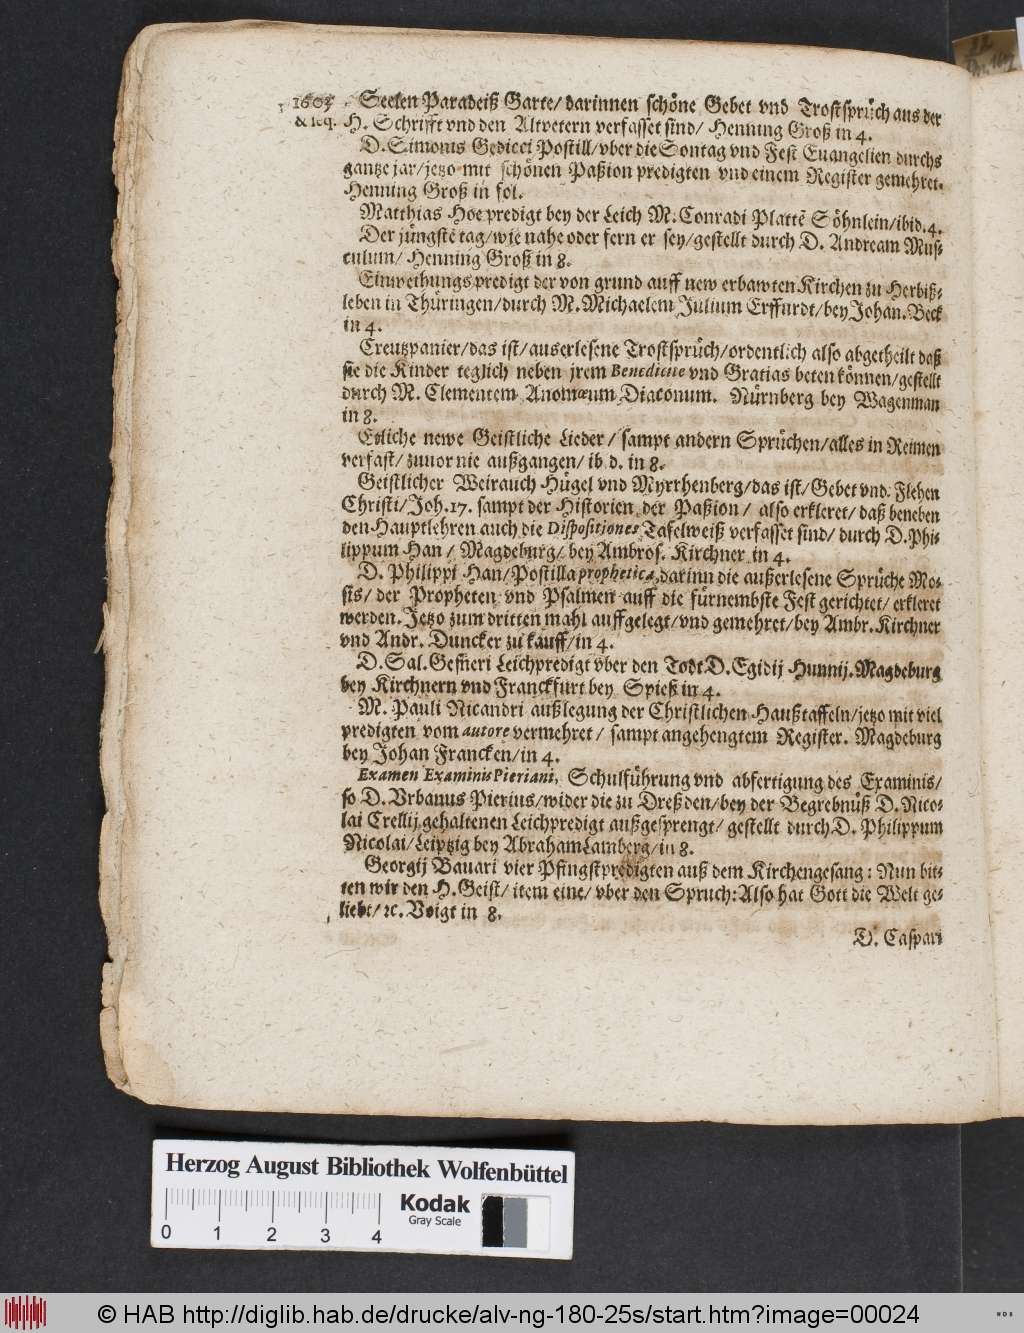 1603 Seelen Paradeiß Garte/ darinnen schöne Gebet vnd Trostsprüch aus der
& seq. H. Schrifft vnd den Altvetern verfasset sind/ Henning Groß in 4.
D. Simonis Gedicci Postill/ vber die Sontag vnd Fest Euangelien durchs
gantze jar/ jetzo mit schönen Paßion predigten vnd einem Register gemehret.
Henning Groß in fol.
Matthias Hoe predigt bey der Leich M. Conradi Plattē Söhnlein/ ibid. 4.
Der jüngstē tag/ wie nahe oder fern er sey/ gestellt durch D. Andream Mus-
culum/ Henning Groß in 8.
Einweihungs predigt der von grund auff new erbawten Kirchen zu Herbiß-
leben in Thüringen/ durch M. Michaelem Julium Erffurdt/ bey Johan. Beck
in 4.
Creutzpanier/ das ist/ auserlesene Trostsprüch/ ordentlich also abgetheilt daß
sie die Kinder teglich neben jrem Benedicite vnd Gratias beten können/ gestellt
durch M. Clementem Anomæum Diaconum. Nürnberg bey Wagenman
in 8.
Etliche newe Geistliche Lieder/ sampt andern Sprüchen/ alles in Reimen
verfast/ zuuor nie außgangen/ ib d. in 8.
Geistlicher Weirauch Hügel vnd Myrrhenberg/ das ist/ Gebet vnd Flehen
Christi/ Joh. 17. sampt der Historien der Paßion/ also erkleret/ daß beneben
den Hauptlehren auch die Dispositiones Tafelweiß verfasset sind/ durch D. Phi-
lippum Han/ Magdeburg/ bey Ambros. Kirchner in 4.
D. Philippi Han/ Postilla prophetica, darinn die außerlesene Sprüche Mo-
sis/ der Propheten vnd Psalmen auff die fürnembste Fest gerichtet/ erkleret
werden. Jetzo zum dritten mahl auffgelegt/ vnd gemehret/ bey Ambr. Kirchner
vnd Andr. Duncker zu kauff/ in 4.
D. Sal. Gesneri Leichpredigt vber den Todt D. Egidij Hunnij. Magdeburg
bey Kirchnern vnd Franckfurt bey Spieß in 4.
M. Pauli Nicandri außlegung der Christlichen Haußtaffeln/ jetzo mit viel
predigten vom autore vermehret/ sampt angehengtem Register. Magdeburg
bey Johan Francken/ in 4.
Examen Examinis Pieriani, Schulführung vnd abfertigung des Examinis/
so D. Vrbanus Pierius/ wider die zu Dreßden/ bey der Begrebnüß D. Nico-
lai Crellij gehaltenen Leichpredigt außgesprengt/ gestellt durch D. Philippum
Nicolai/ Leiptzig bey Abraham Lamberg/ in 8.
Georgij Bauari vier Pfingstpredigten auß dem Kirchengesang: Nun bit-
ten wir den H. Geist/ item eine/ vber den Spruch: Also hat Gott die Welt ge-
liebt/ ꝛc. Voigt in 8.
D. Caspari
Herzog August Bibliothek Wolfenbüttel
0 1 2 3 4
Kodak
Gray Scale
© HAB http://diglib.hab.de/drucke/alv-ng-180-25s/start.htm?image=00024